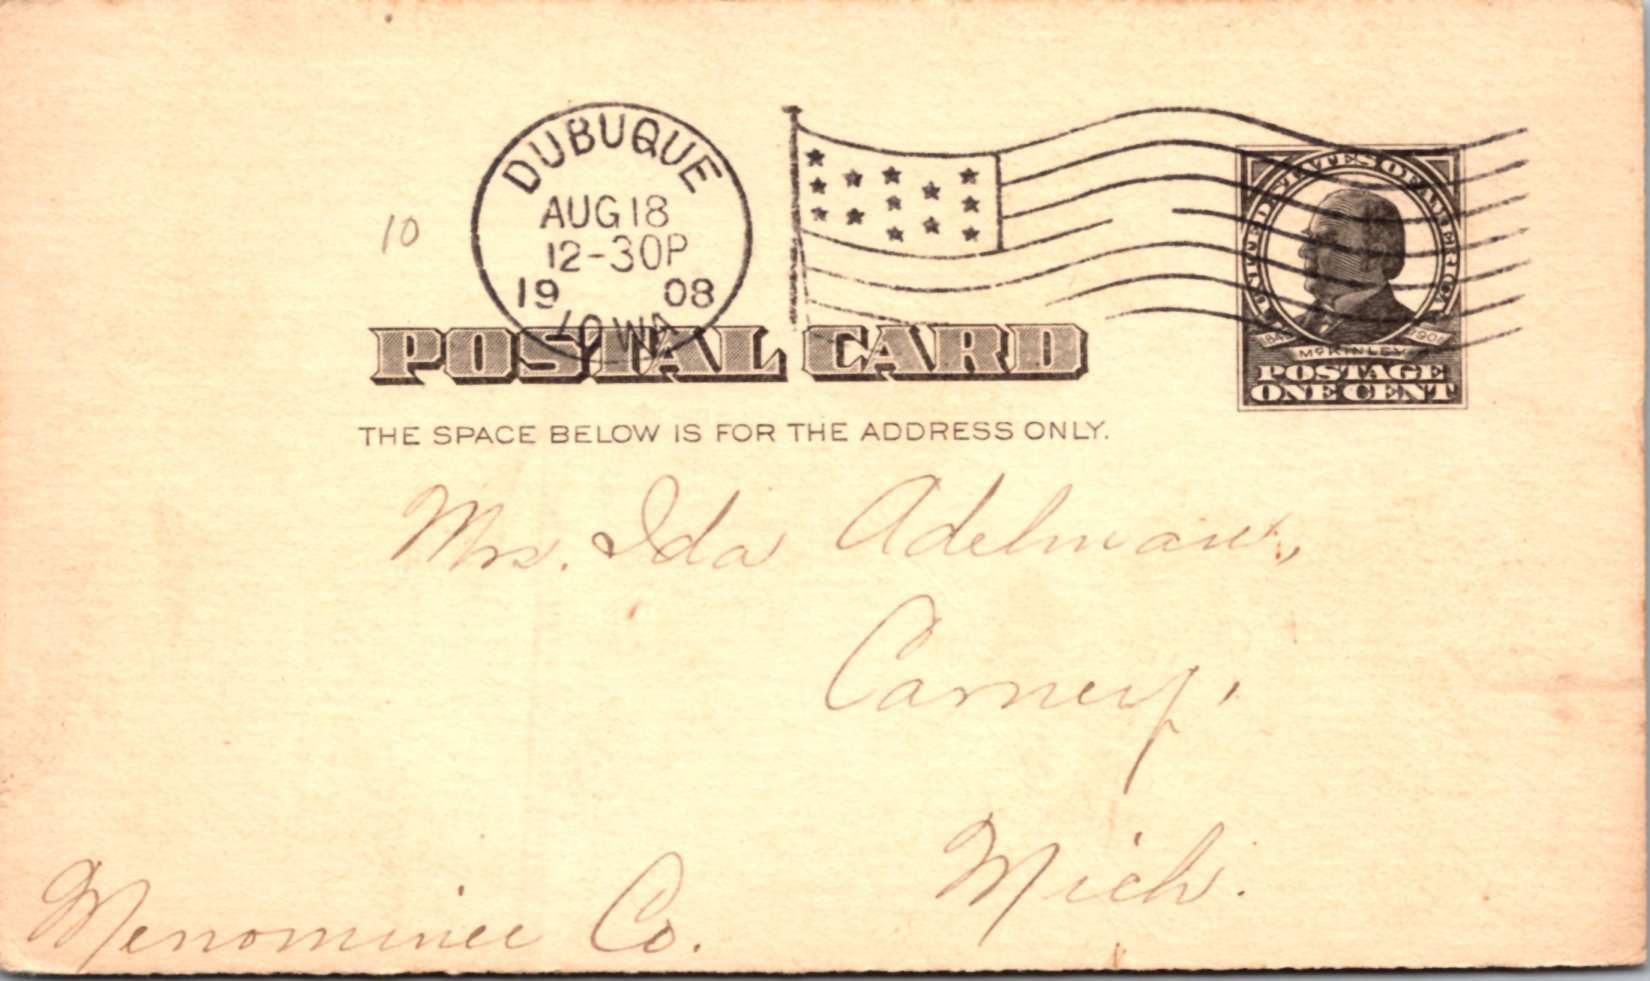 DUBUQUE
AUG 18
12-30P
1908
IOWA
10
UNITED STATES OF AMERICA
1843 1901
McKINLEY
POSTAGE
ONE CENT
POSTAL CARD
THE SPACE BELOW IS FOR THE ADDRESS ONLY.
Mrs. Ida Adelman,
Carney,
Mich.
Menominee Co.